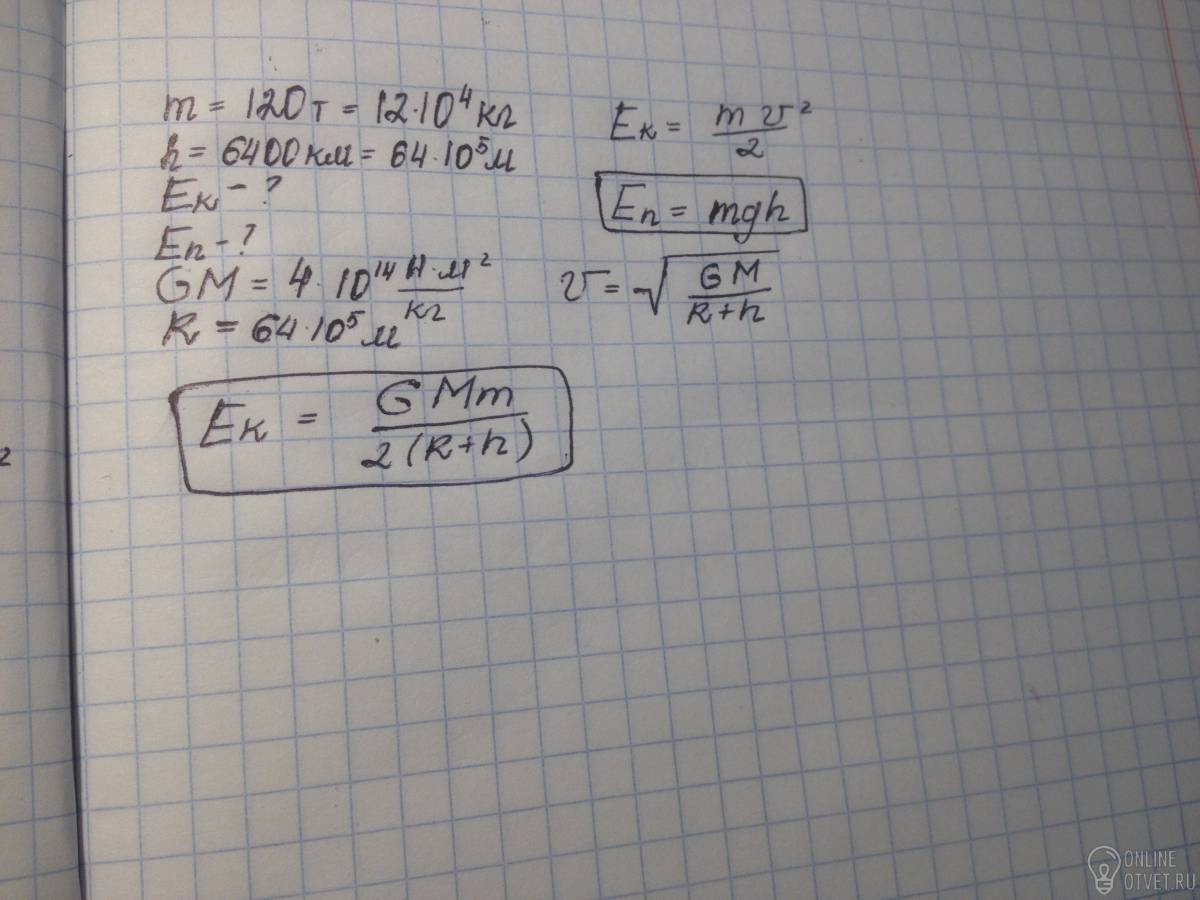 m = 120 т = 12·10⁴ кг
h = 6400 км = 64·10⁵ м
Eк - ?
Eп - ?
GM = 4·10¹⁴ Н·м²/кг
R = 64·10⁵ м
Eк = mv²/2
Eп = mgh
v = √(GM/(R+h))
Eк = GMm/2(R+h)
2
ONLINE
OTVET.RU